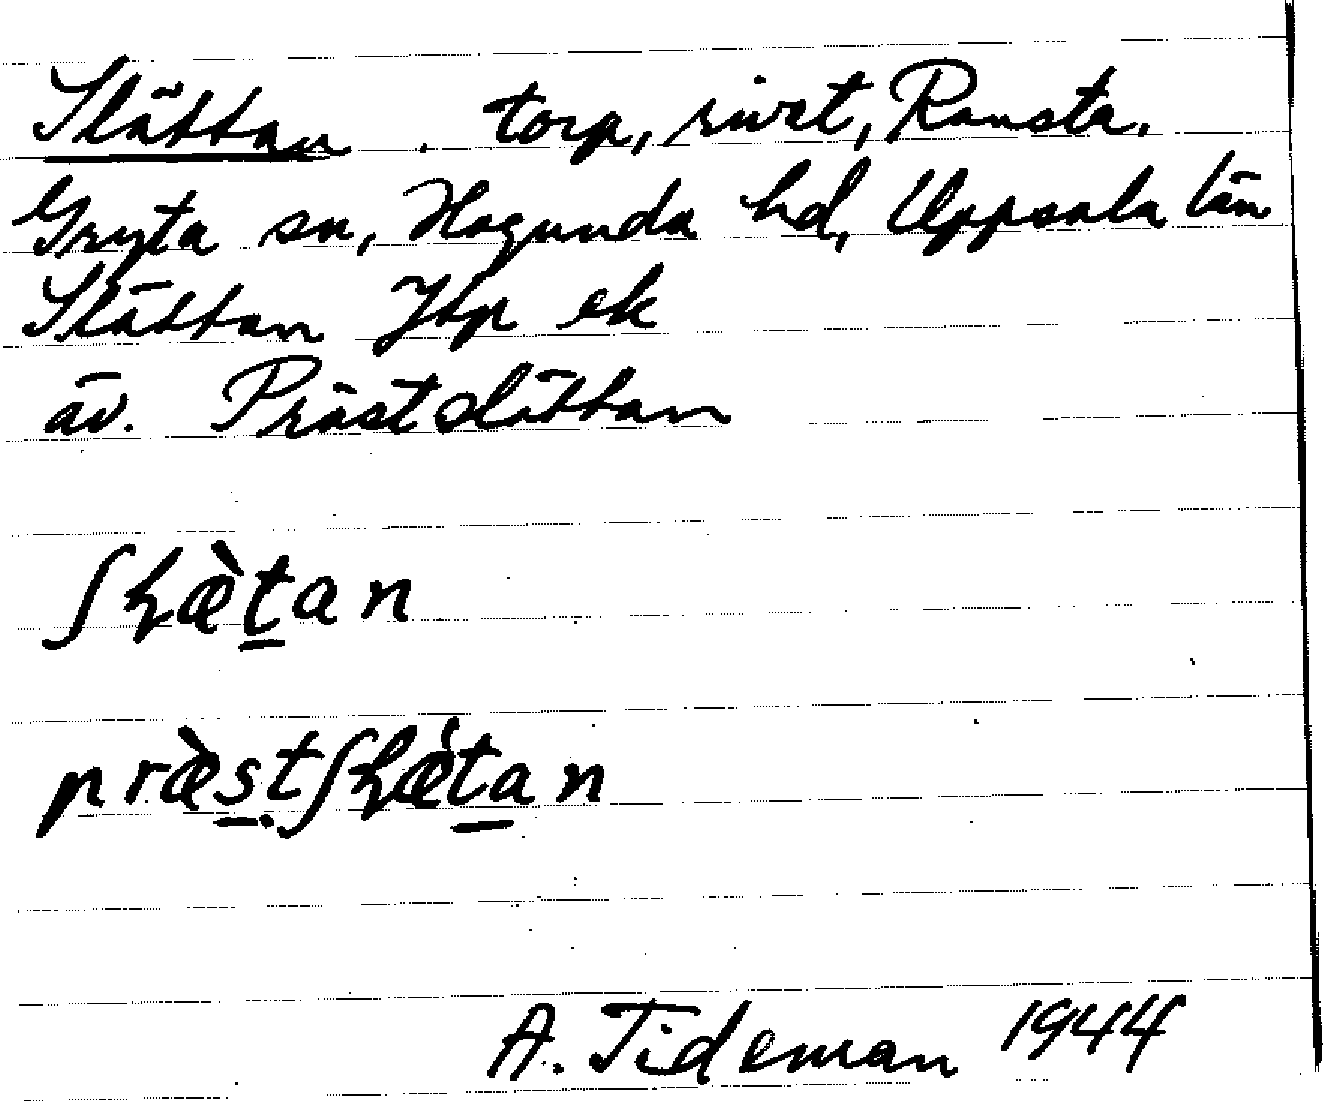 Slättan. torp, rivet, Ransta.
Gryta sn, Hagunda hd, Uppsala län
Slättan Jtp ek
äv. Prästslättan
ʃɦæ̀t̠an
præ̀s̠tʃɦæ̇t̠an
A. Tideman 1944